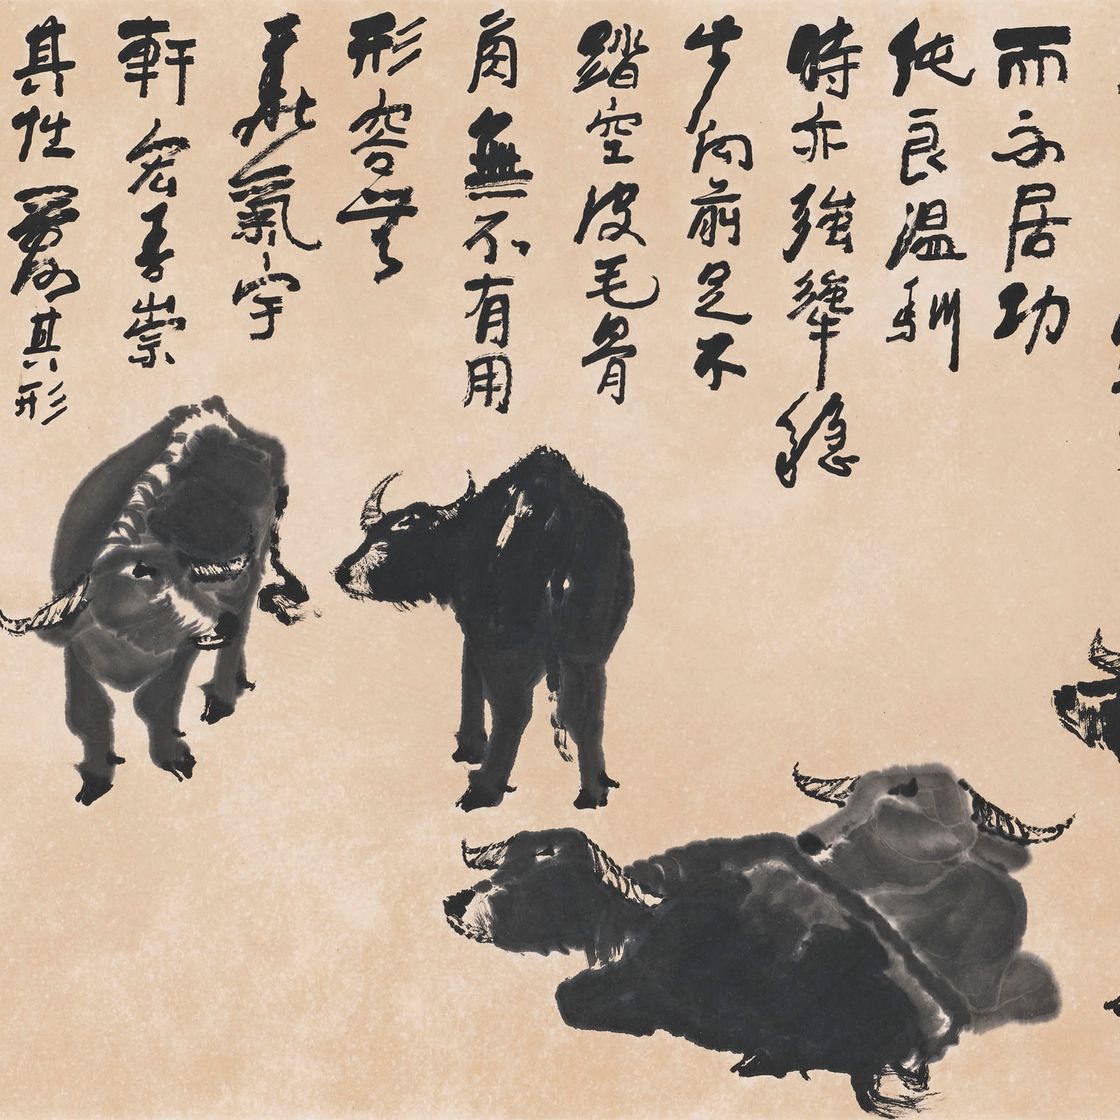 而不居功
純良溫馴
時亦強犟穩
步向前足不
踏空皮毛骨
角無不有用
形容無
華氣宇
軒宏吾崇
其性愛其形